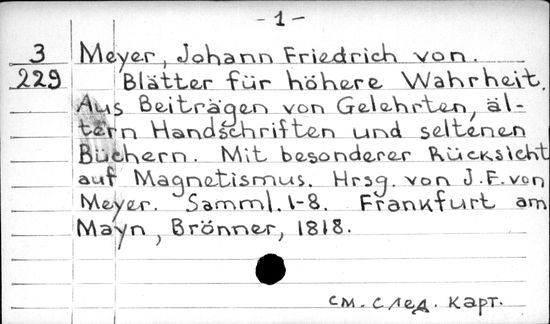 - 1 -
3 Meyer, Johann Friedrich von.
229 Blätter für höhere Wahrheit.
Aus Beiträgen von Gelehrten, äl-
tern Handschriften und seltenen
Büchern. Mit besonderer Rücksicht
auf Magnetismus. Hrsg. von J.F. von
Meyer. Samml. 1-8. Frankfurt am
Mayn, Brönner, 1818.
см. след. карт.